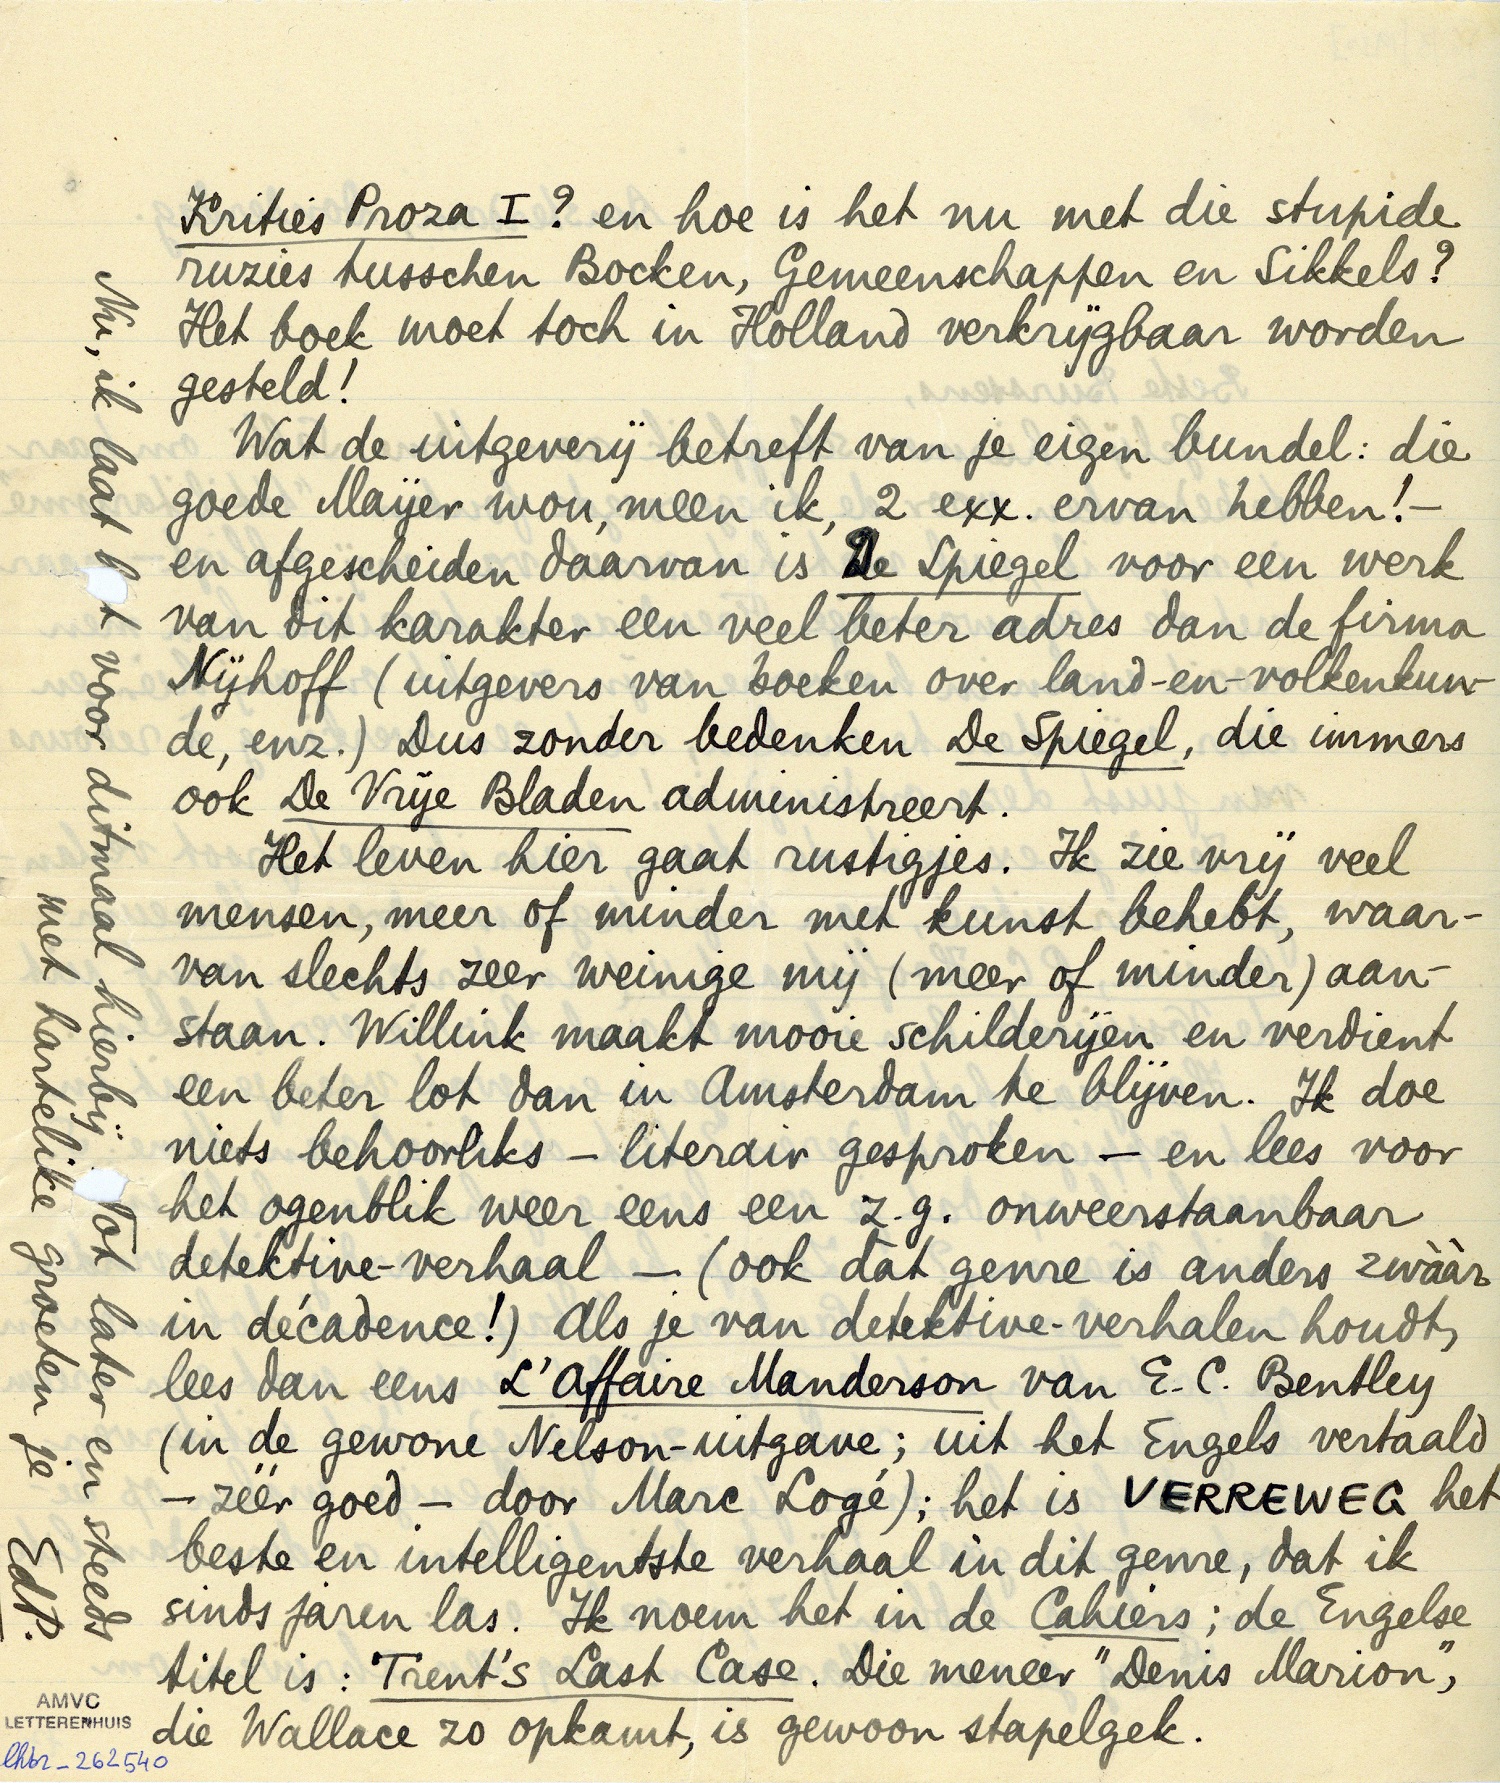 Krities Proza I? en hoe is het nu met die stupide
ruzies tusschen Bocken, Gemeenschappen en Sikkels?
Het boek moet toch in Holland verkrijgbaar worden
gesteld!
Wat de uitgeverij betreft van je eigen bundel: die
goede Maijer wou, meen ik, 2 exx. ervan hebben! –
en afgescheiden daarvan is De Spiegel voor een werk
van dit karakter een veel beter adres dan de firma
Nijhoff (uitgevers van boeken over land-en-volkenkun-
de, enz.) Dus zonder bedenken De Spiegel, die immers
ook De Vrije Bladen administreert.
Het leven hier gaat rustigjes. Ik zie vrij veel
mensen, meer of minder met kunst behebt, waar-
van slechts zeer weinige mij (meer of minder) aan-
staan. Willink maakt mooie schilderijen en verdient
een beter lot dan in Amsterdam te blijven. Ik doe
niets behoorliks – literair gesproken – en lees voor
het ogenblik weer eens een z.g. onweerstaanbaar
detektive-verhaal – (ook dàt genre is anders zwààr
in décadence!) Als je van detektive-verhalen houdt,
lees dan eens L'Affaire Manderson van E.C. Bentley
(in de gewone Nelson-uitgave; uit het Engels vertaald
– zéér goed – door Marc Logé); het is VERREWEG het
beste en intelligentste verhaal in dit genre, dat ik
sinds jaren las. Ik noem het in de Cahiers; de Engelse
titel is: Trent's Last Case. Die meneer "Denis Marion",
die Wallace zo opkamt, is gewoon stapelgek.
Nu, ik laat 't voor ditmaal hierbij. Tot later en steeds
met hartelike groeten je
EdP.
AMVC
LETTERENHUIS
lhbr_262540